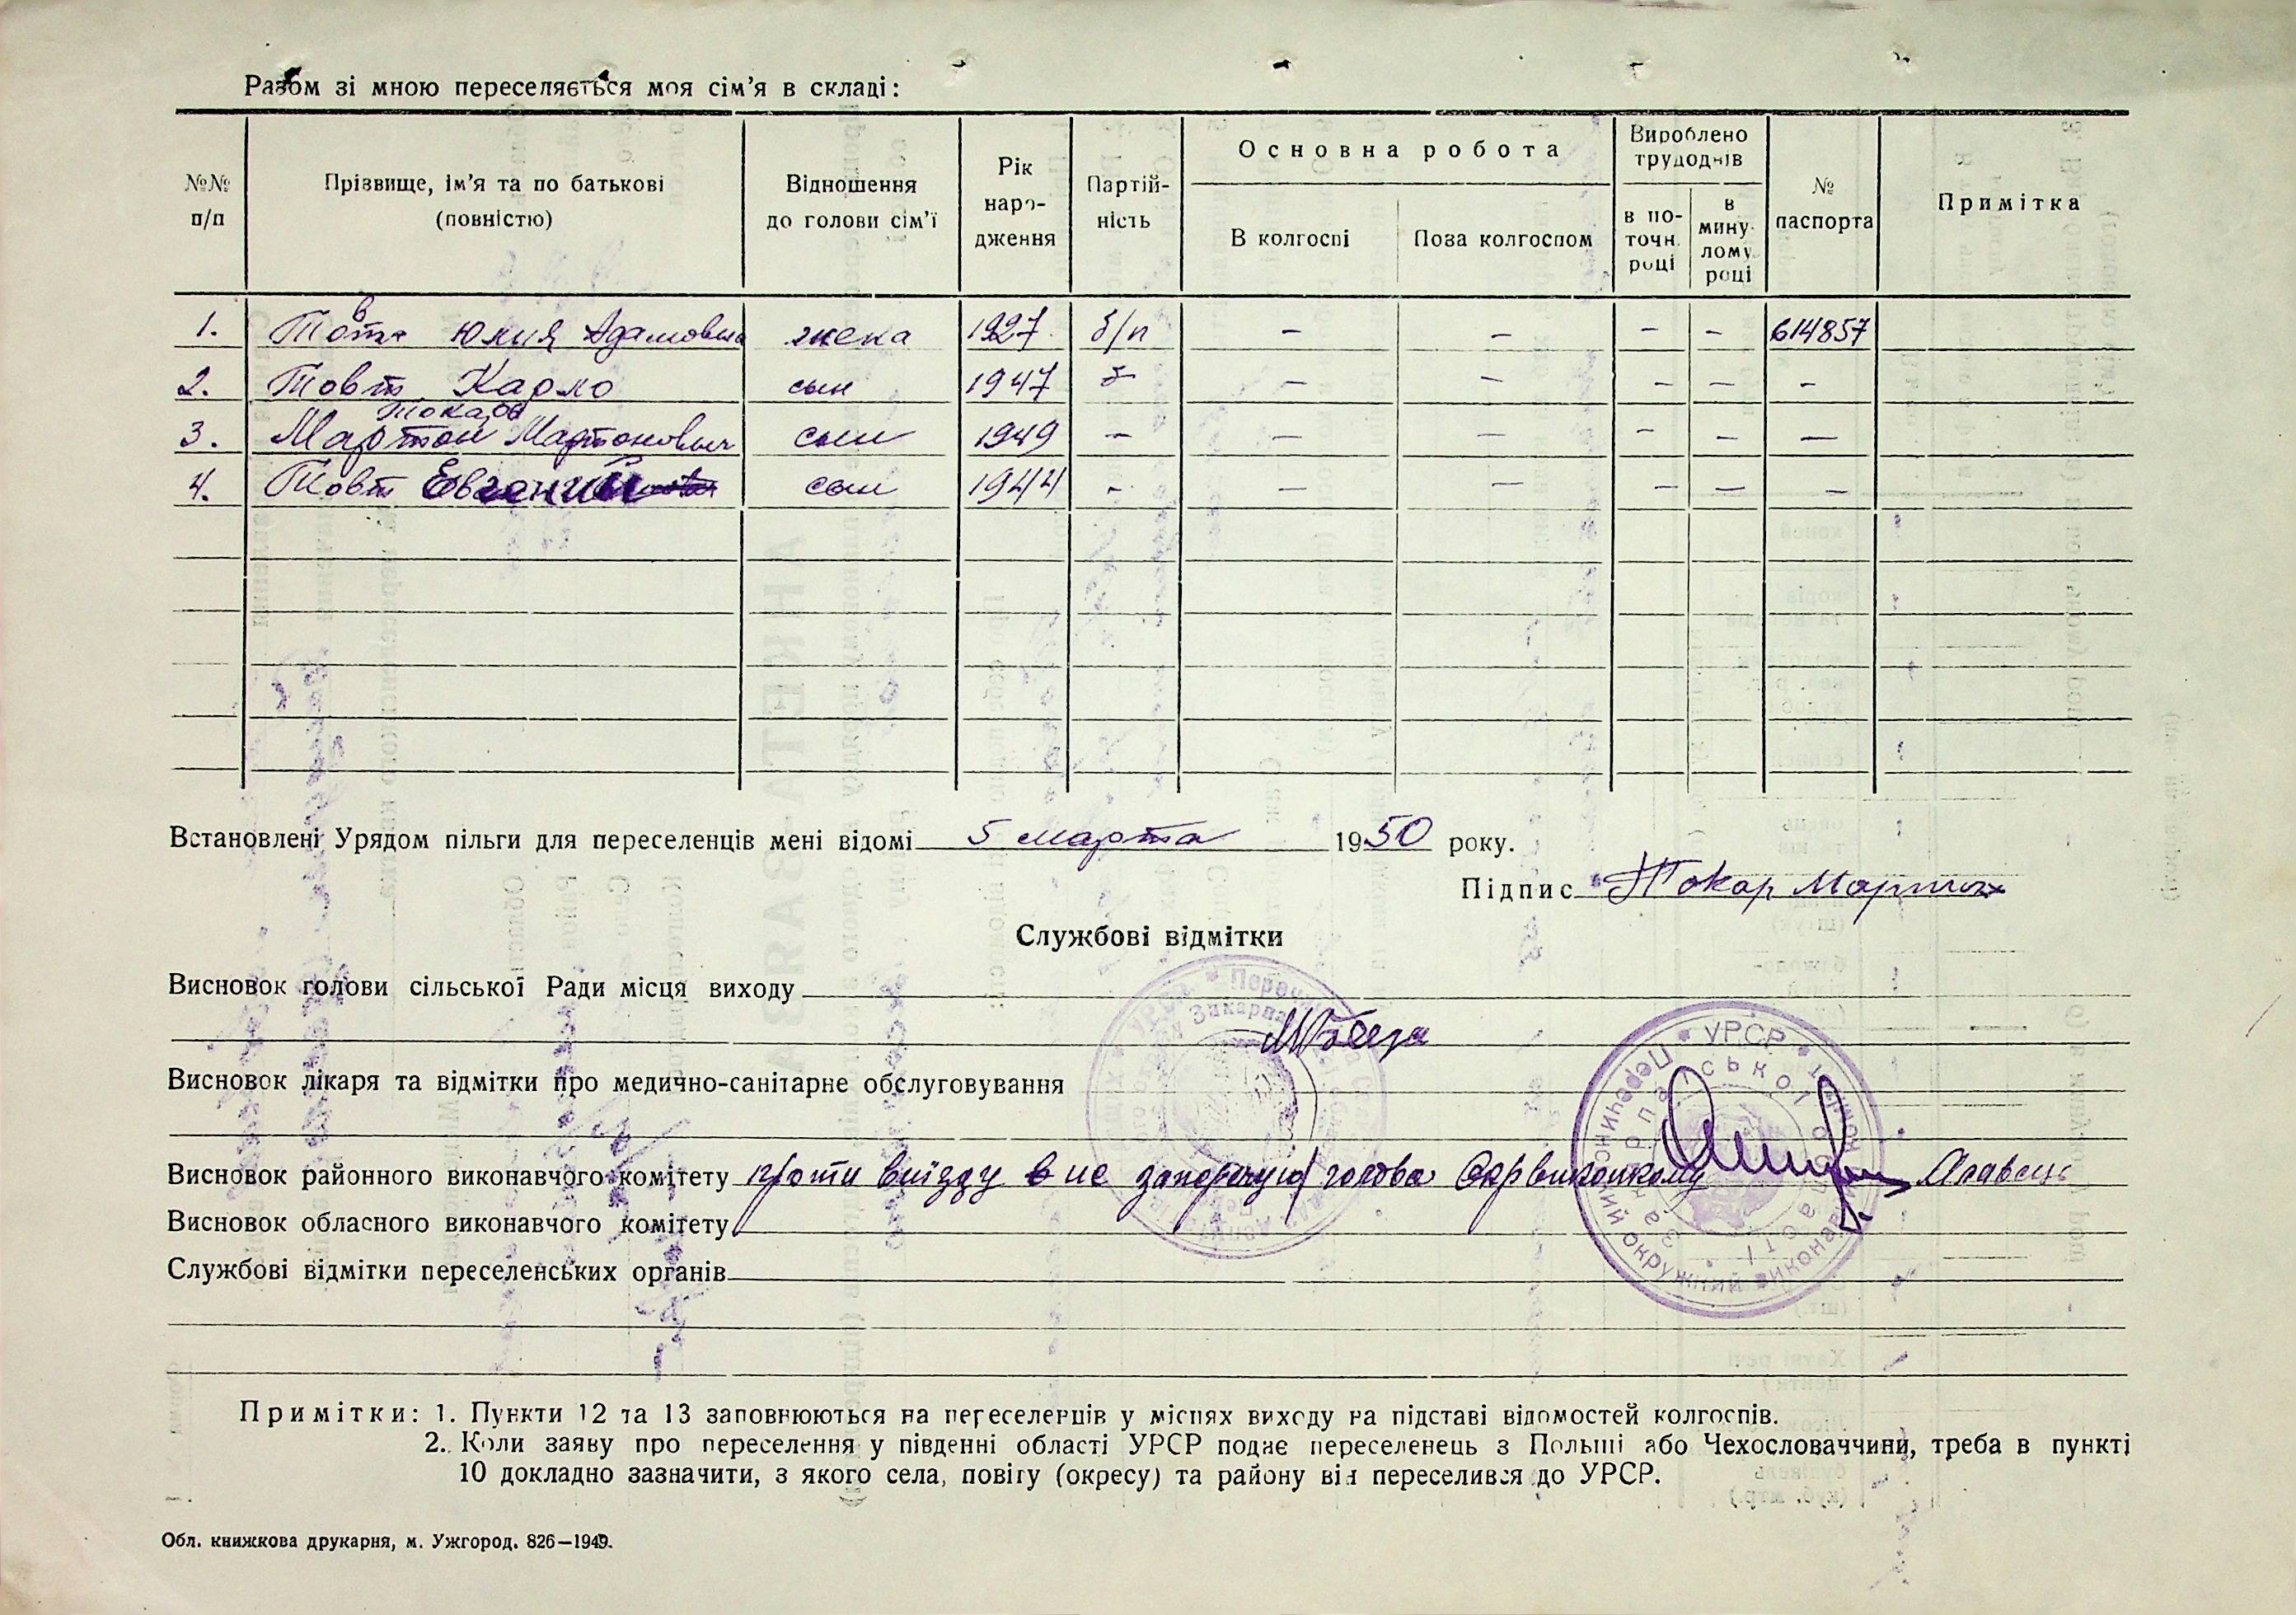 Разом зі мною переселяється моя сім'я в складі:
№№ п/п
Прізвище, ім'я та по батькові (повністю)
Відношення до голови сім'ї
Рік народження
Партійність
Основна робота
В колгоспі
Поза колгоспом
Вироблено трудоднів
в поточн. році
в минулому році
№ паспорта
Примітка
1. Товт Юлия Адамовна жена 1927 б/п — — — — 614857
2. Товт Карло сын 1947 — — — — —
Токар
3. Мартон Мартонович сын 1949 — — — — — —
4. Товт Евгений сын 1944 — — — — — —
Встановлені Урядом пільги для переселенців мені відомі 5 марта 1950 року.
Підпис Токар Мартон
Службові відмітки
Висновок голови сільської Ради місця виходу
Висновок лікаря та відмітки про медично-санітарне обслуговування
Висновок районного виконавчого комітету проти виїзду не заперечую голова Окрвиконкому
Висновок обласного виконавчого комітету
Службові відмітки переселенських органів
УРСР Перечинский окружний виконавчий комітет Закарпатської області
Примітки: 1. Пункти 12 та 13 заповнюються на переселенців у місцях виходу на підставі відомостей колгоспів.
2. Коли заяву про переселення у південні області УРСР подає переселенець з Польщі або Чехословаччини, треба в пункті
10 докладно зазначити, з якого села, повіту (окресу) та району він переселився до УРСР.
Обл. книжкова друкарня, м. Ужгород. 826—1949.